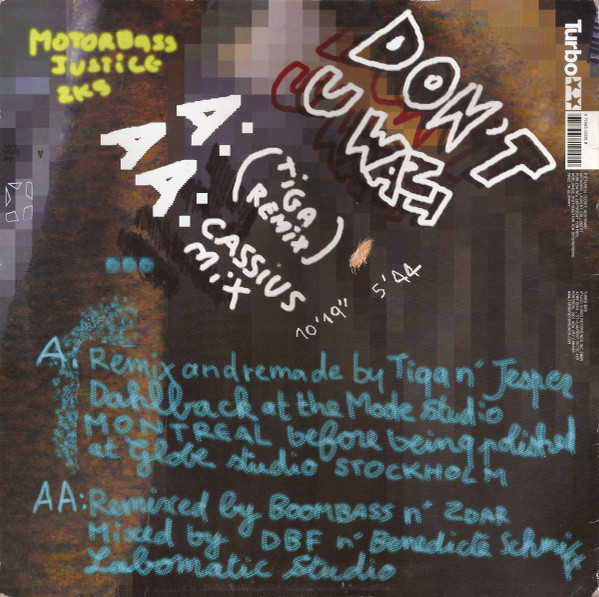 MOTORBASS
JUSTICE
2K9
Turbo
DON'T
U WAH
A.
(TIGA
REMIX)
AA.
CASSIUS
MIX
10'19"
5'44
A: Remix and remade by Tiga n' Jesper
Dahlback at the Mode Studio
MONTREAL before being polished
at Globe studio STOCKHOLM
AA: Remixed by BOOMBASS n' ZDAR
Mixed by DBF n' Benedicte Schmitt
Labomatic Studio